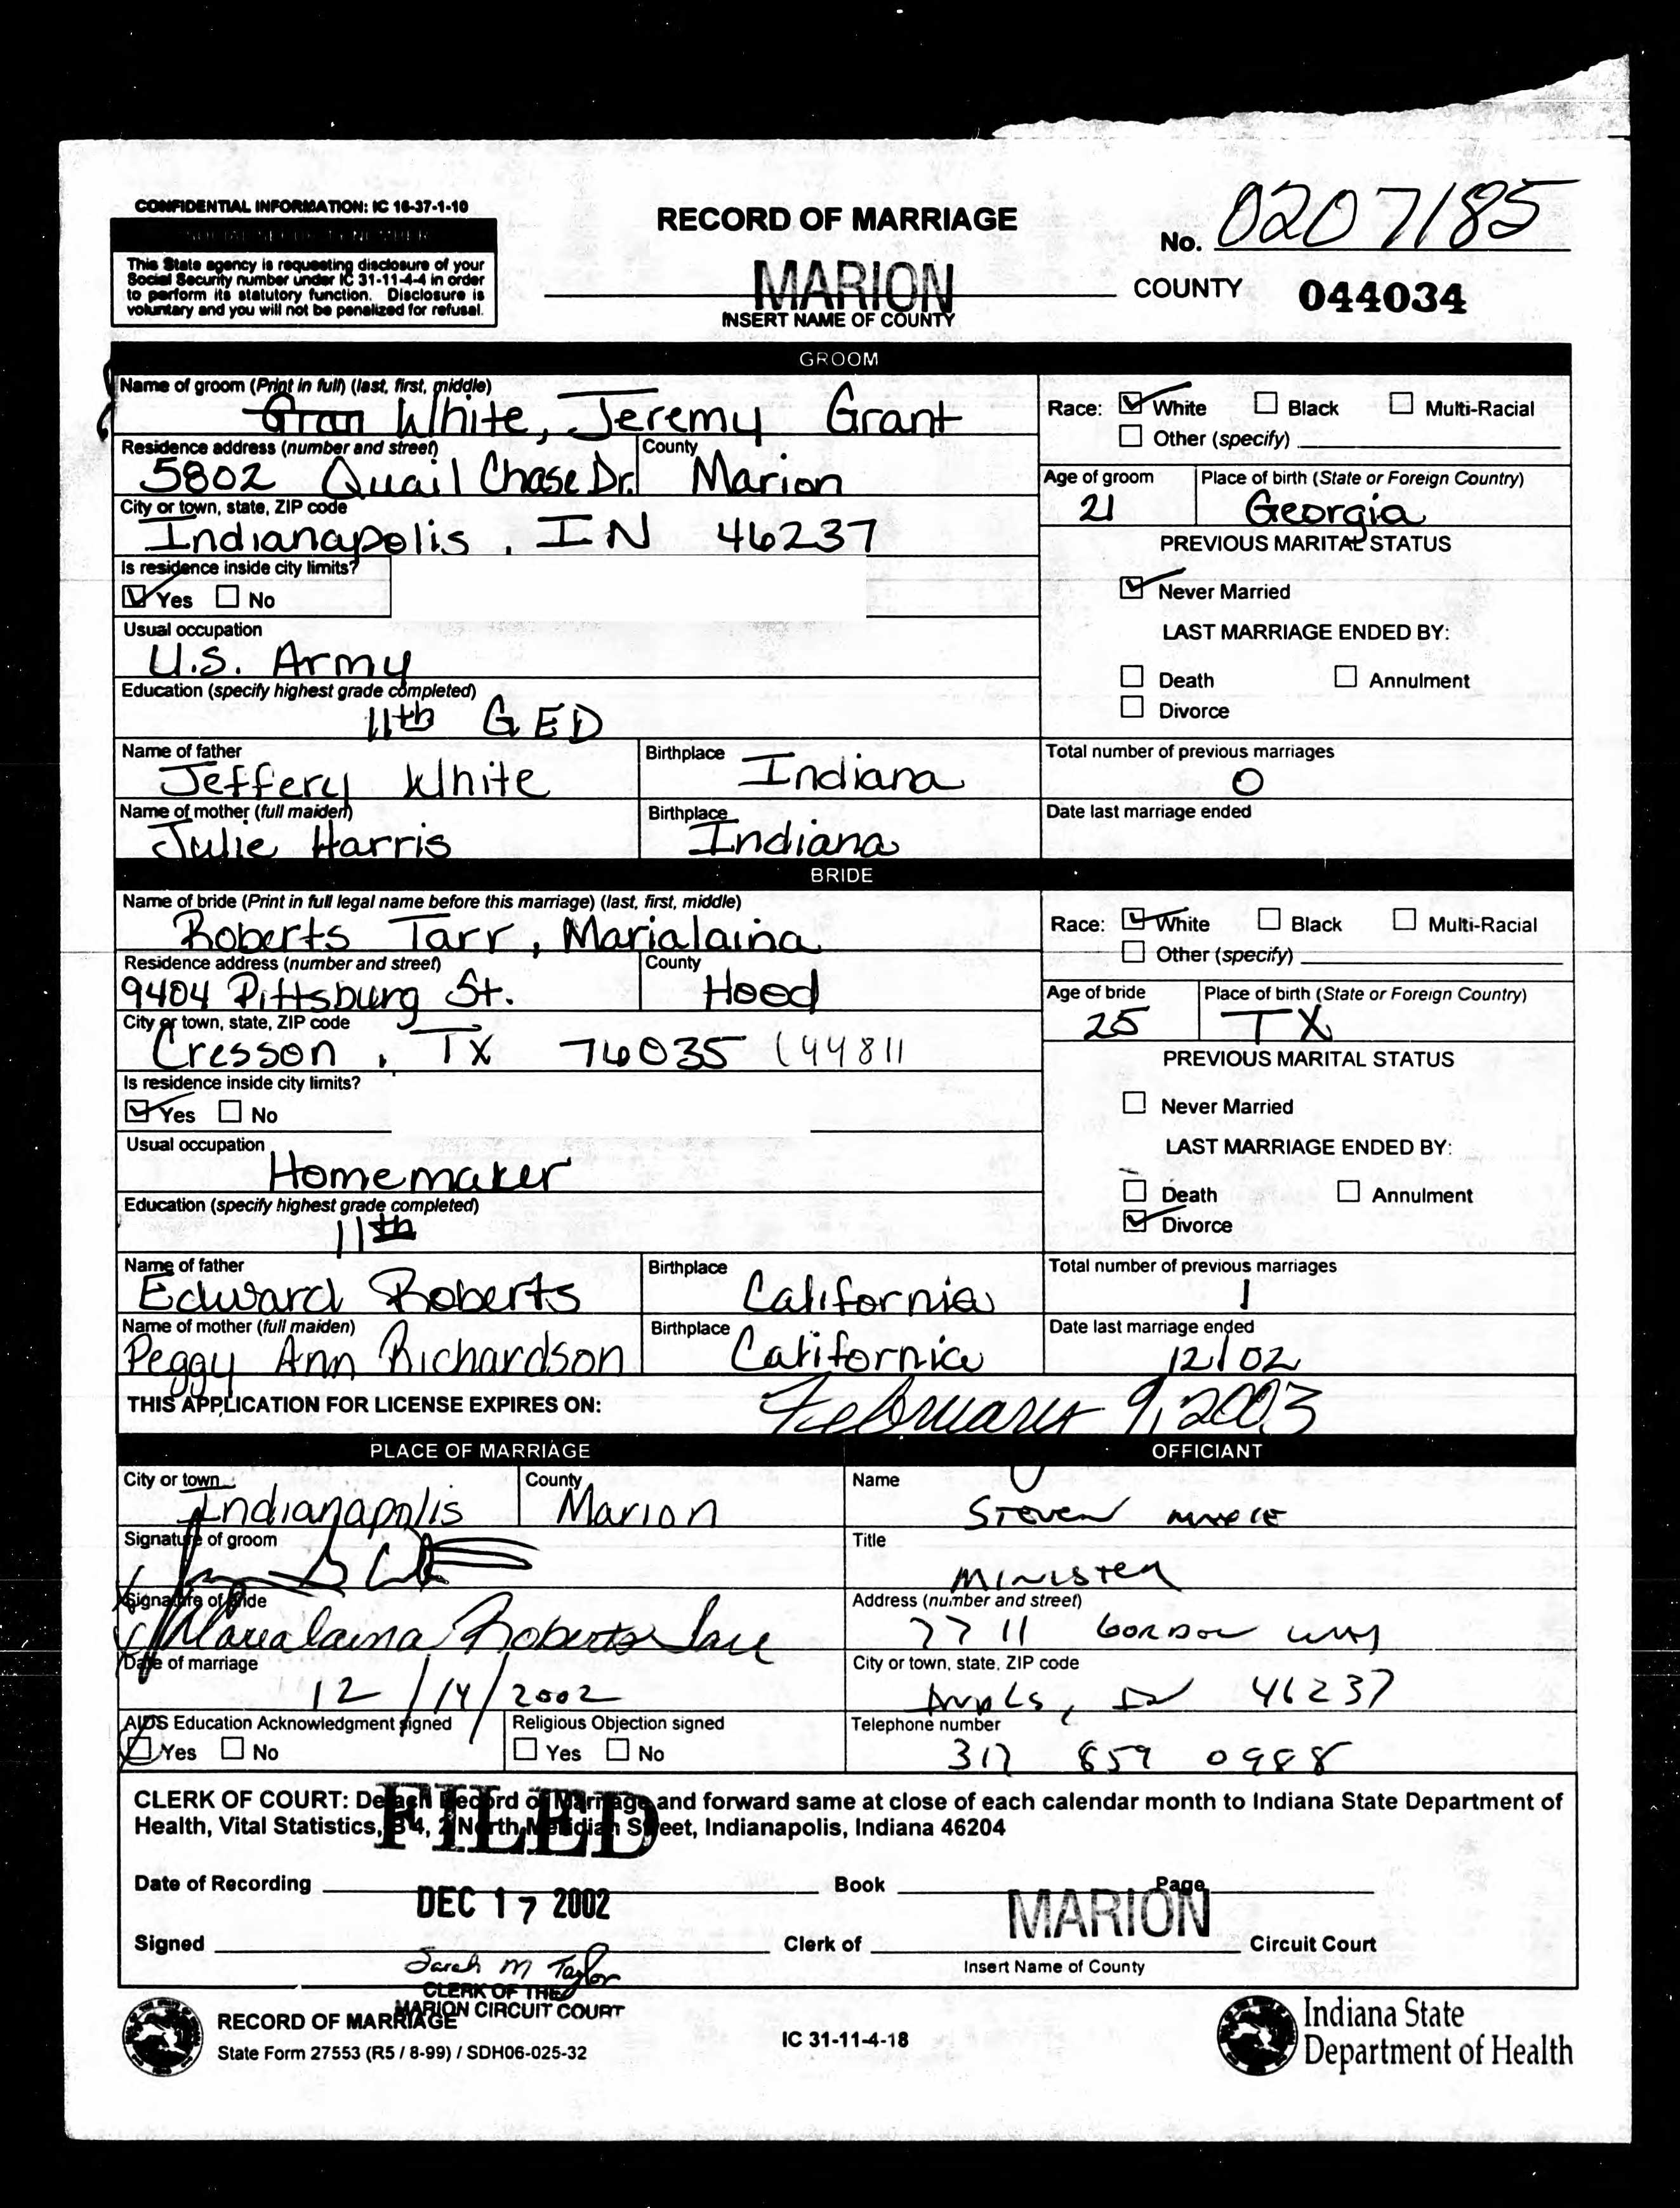 CONFIDENTIAL INFORMATION: IC 16-37-1-10
SOCIAL SECURITY NUMBER
This State agency is requesting disclosure of your
Social Security number under IC 31-11-4-4 in order
to perform its statutory function. Disclosure is
voluntary and you will not be penalized for refusal.
RECORD OF MARRIAGE
No. 0207185
MARION COUNTY 044034
INSERT NAME OF COUNTY
GROOM
Name of groom (Print in full) (last, first, middle)
Gran White, Jeremy Grant
Race: White Black Multi-Racial
Other (specify)
Residence address (number and street) County
5802 Quail Chase Dr. Marion
Age of groom Place of birth (State or Foreign Country)
21 Georgia
City or town, state, ZIP code
Indianapolis, IN 46237
PREVIOUS MARITAL STATUS
Is residence inside city limits?
Yes No
Never Married
Usual occupation
U.S. Army
LAST MARRIAGE ENDED BY:
Death Annulment
Divorce
Education (specify highest grade completed)
11th GED
Name of father Birthplace
Jeffery White Indiana
Total number of previous marriages
0
Name of mother (full maiden) Birthplace
Julie Harris Indiana
Date last marriage ended
BRIDE
Name of bride (Print in full legal name before this marriage) (last, first, middle)
Roberts Tarr, Marialaina
Race: White Black Multi-Racial
Other (specify)
Residence address (number and street) County
9404 Pittsburg St. Hood
Age of bride Place of birth (State or Foreign Country)
25 TX
City or town, state, ZIP code
Cresson, TX 76035 (44811
PREVIOUS MARITAL STATUS
Is residence inside city limits?
Yes No
Never Married
Usual occupation
Homemaker
LAST MARRIAGE ENDED BY:
Death Annulment
Divorce
Education (specify highest grade completed)
11th
Name of father Birthplace
Edward Roberts California
Total number of previous marriages
1
Name of mother (full maiden) Birthplace
Peggy Ann Richardson California
Date last marriage ended
12/02
THIS APPLICATION FOR LICENSE EXPIRES ON: February 9, 2003
PLACE OF MARRIAGE OFFICIANT
City or town County
Indianapolis Marion
Name
Steven
Signature of groom
Title
Minister
Signature of bride
Marialaina Roberts Tarr
Address (number and street)
7711 Gordon Way
Date of marriage
12/14/2002
City or town, state, ZIP code
Indpls, IN 46237
AIDS Education Acknowledgment signed Religious Objection signed
Yes No Yes No
Telephone number
317 859 0988
CLERK OF COURT: Detach Record of Marriage and forward same at close of each calendar month to Indiana State Department of
Health, Vital Statistics, B 4, 2 North Meridian Street, Indianapolis, Indiana 46204
FILED
Date of Recording DEC 17 2002 Book Page
Signed Sarah M Taylor Clerk of MARION Circuit Court
Insert Name of County
CLERK OF THE
MARION CIRCUIT COURT
RECORD OF MARRIAGE
State Form 27553 (R5 / 8-99) / SDH06-025-32
IC 31-11-4-18
Indiana State
Department of Health